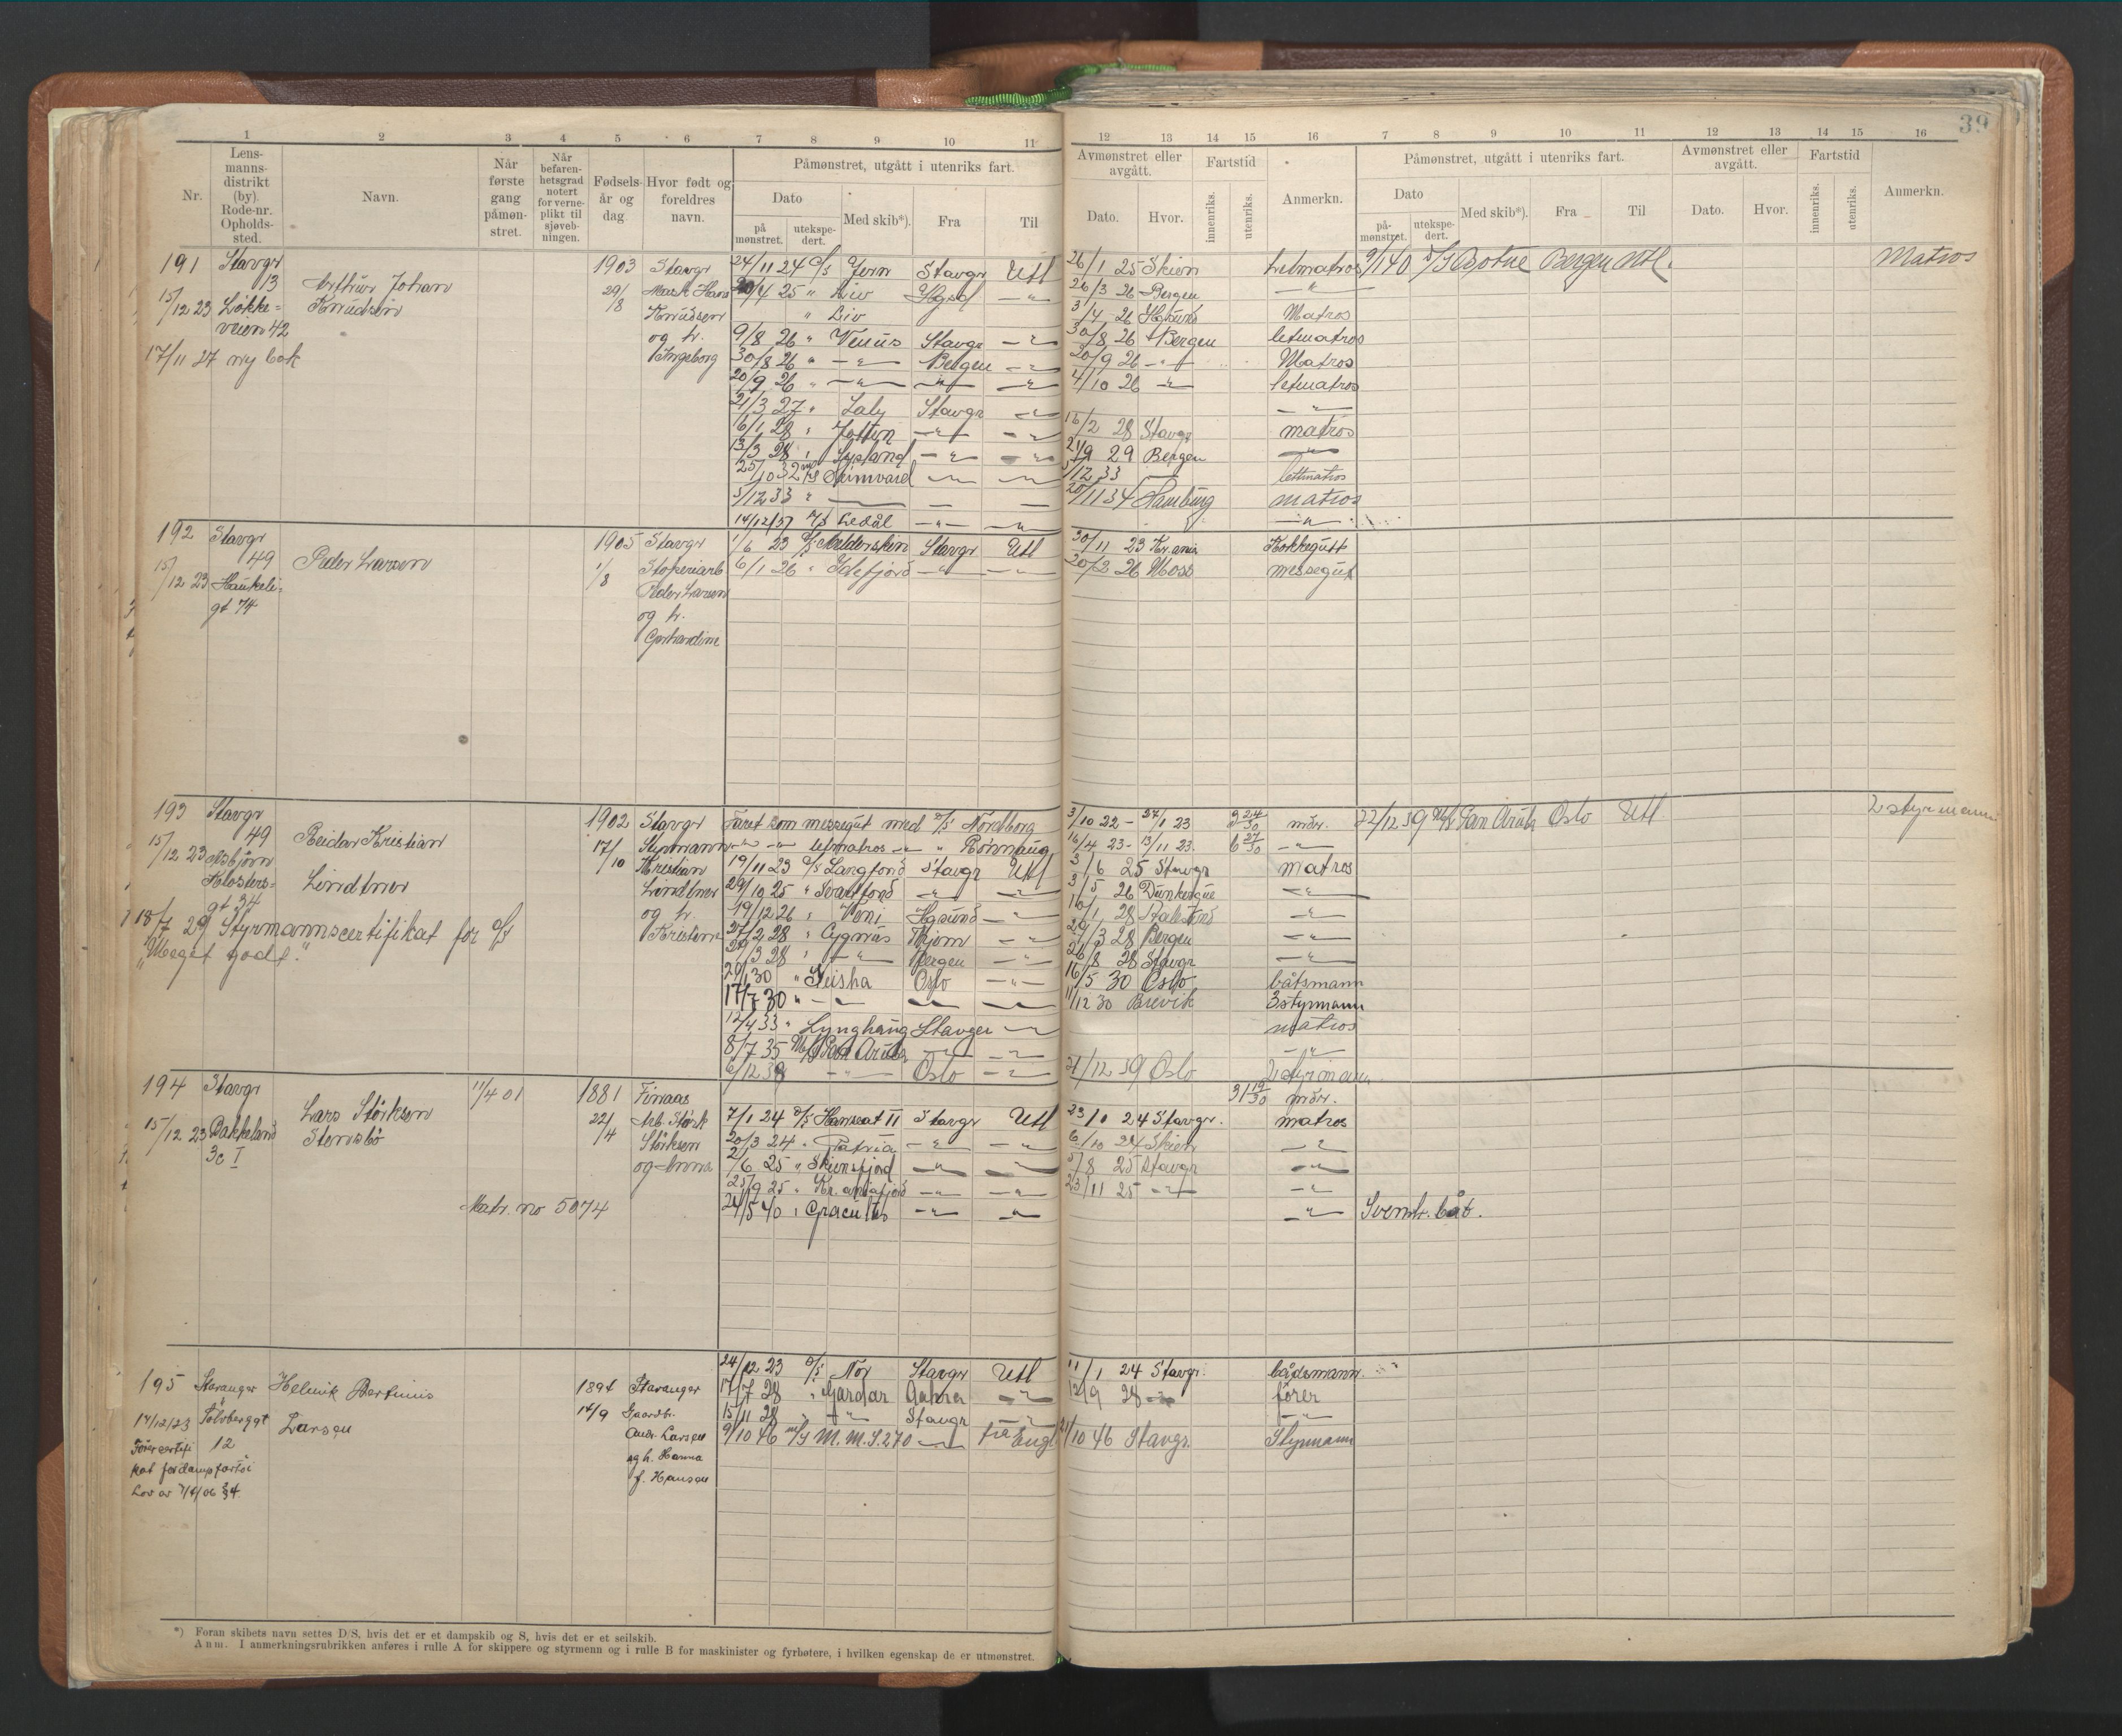 39
1 2 3 4 5 6 7 8 9 10 11 12 13 14 15 16 7 8 9 10 11 12 13 14 15 16
Nr.
Lens-
manns-
distrikt
(by).
Rode-nr.
Opholds-
sted.
Navn.
Når
første
gang
påmøn-
stret.
Når
befaren-
hetsgrad
notert
for verne-
plikt til
sjøveb-
ningen.
Fødsels-
år og
dag
Hvor født og
foreldres
navn.
Påmønstret, utgått i utenriks fart.
Dato
på
mønstret.
utekspe-
dert.
Med skib*).
Fra
Til
Avmønstret eller
avgått.
Dato.
Hvor.
Fartstid
innenriks.
utenriks.
Anmerkn.
Påmønstret, utgått i utenriks fart.
Dato
på-
mønstret.
utekspe-
dert.
Med skib*).
Fra
Til
Avmønstret eller
avgått.
Dato.
Hvor.
Fartstid
innenriks.
utenriks.
Anmerkn.
191 Stavgr
13
15/12 23 Løkke-
veien 42
17/11 27 ny bok
Arthur Johan
Knudsen
1903
29/8
Stavgr
Mask Hans
Knudsen
og h.
Ingeborg
24/11 24 D/S Jern Stavgr Utl 26/1 25 Skien Letmatros
/4 25 " Liv Hgsd —"— 26/3 26 Bergen —"—
" Liv 3/4 26 Hgsund Matros
9/8 26 " Venus Stavgr —"— 30/8 26 Bergen letmatros
30/8 26 " —"— Bergen —"— 20/9 26 —"— Matros
20/9 26 " —"— —"— —"— 4/10 26 —"— letmatros
21/3 27 " Laly Stavgr —"— —"—
6/1 28 " Jotten —"— —"— 16/2 28 Stavgr matros
13/3 28 " Sysland —"— —"— 21/9 29 Bergen —"—
25/10 32 M/S Brimvard —"— —"— 5/12 33 — lettmatros
5/12 33 " — — — 20/11 34 Hamburg matros
14/12/37 M/S Ledål —"— —"— —"—
9/1 40 D/S Botne Bergen Utl. Matros
192 Stavgr
49
15/12 23 Haukeli-
gt 74
Peder Larsen
1905
1/8
Stavgr
Stoperiarb
Peder Larsen
og h.
Gerhardine
1/6 23 D/S Melderskin Stavgr Utl 30/11 23 Kr.ania Kokkegutt
6/1 26 " Idefjord —"— —"— 20/2 26 Moss messegut
193 Stavgr
49
15/12 23 Asbjørn
Klosters-
gt 34
Reidar Kristian
Lindtner
18/7 29 Styrmannscertifikat for D/S
"Meget godt."
1902
17/10
Stavgr
Styrmann
Kristian
Lindtner
og h.
Kristine
Faret som messegut med D/S Nordborg 3/10 22 - 27/1 23 3 24/30 mdr.
—"— —"— letmatros —"— " Rønnaug 16/4 23 - 13/11 23 6 27/30 —"—
19/11 23 D/S Langfond Stavgr Utl 3/6 25 Stavgr matros
29/10 25 " Svartfond —"— —"— 3/5 26 Dunkerque —"—
19/12 26 " Veni Hgsund —"— 16/1 28 —"—
27/2 28 " Cygnus —"— 29/3 28 Bergen —"—
29/3 28 " —"— Bergen —"— 26/8 28 Stavgr —"—
20/1 30 " Geisha Oslo —"— 16/5 30 Oslo båtsmann
17/7 30 " —"— —"— —"— 11/12 30 Brevik 3 styrmann
12/4 33 " Lynghaug Stavgr —"— matros
8/7 35 M/S San Aruba —"— —"— —"—
6/12 38 —"— Oslo —"— 21/12 39 Oslo 2 styrmann
22/12 39 M/S San Aruba Oslo Utl 2 styrmann
194 Stavgr
15/12 23 Bakkeland
3c I
Lars Størksen
Stensbø
11/4 01
Matr. no 5074
1881
22/4
Finaas
Arb. Størk
Størksen
og Anna
31 19/30 mdr.
7/1 24 D/S Hanseat II Stavgr Utl 23/10 24 Stavgr. matros
20/3 24 " Patria —"— —"— 6/10 24 Skien —"—
2/6 25 " Skiensfjord —"— —"— 5/8 25 Stavgr —"—
25/9 25 " Kr.aniafjord —"— —"— 23/11 25 —"— —"—
24/5 40 " Graculus —"— —"— —"— Svensk båt.
195 Stavanger
14/12/23 Tolvberggt
12
Helmik Bertinius
Larsen
Førercertifi
kat for dampfartøi
Lov av 7/4/06 §4
1894
14/9
Stavanger
Gaardbr.
Andr. Larsen
og h. Hanna
f. Hansen
24/12 23 D/S Nor Stavgr Utl 11/1 24 Stavgr. bådsmann
17/7 28 " Gardar —"— 12/9 28 —"— fører
15/11 28 " —"— Stavgr —"— —"—
9/10 46 M/S M.M.S.270 —"— til Engl 21/10 46 Stavgr. Styrmann
*) Foran skibets navn settes D/S, hvis det er et dampskib og S, hvis det er et seilskib.
Anm. I anmerkningsrubrikken anføres i rulle A for skippere og styrmenn og i rulle B for maskinister og fyrbøtere, i hvilken egenskap de er utmønstret.